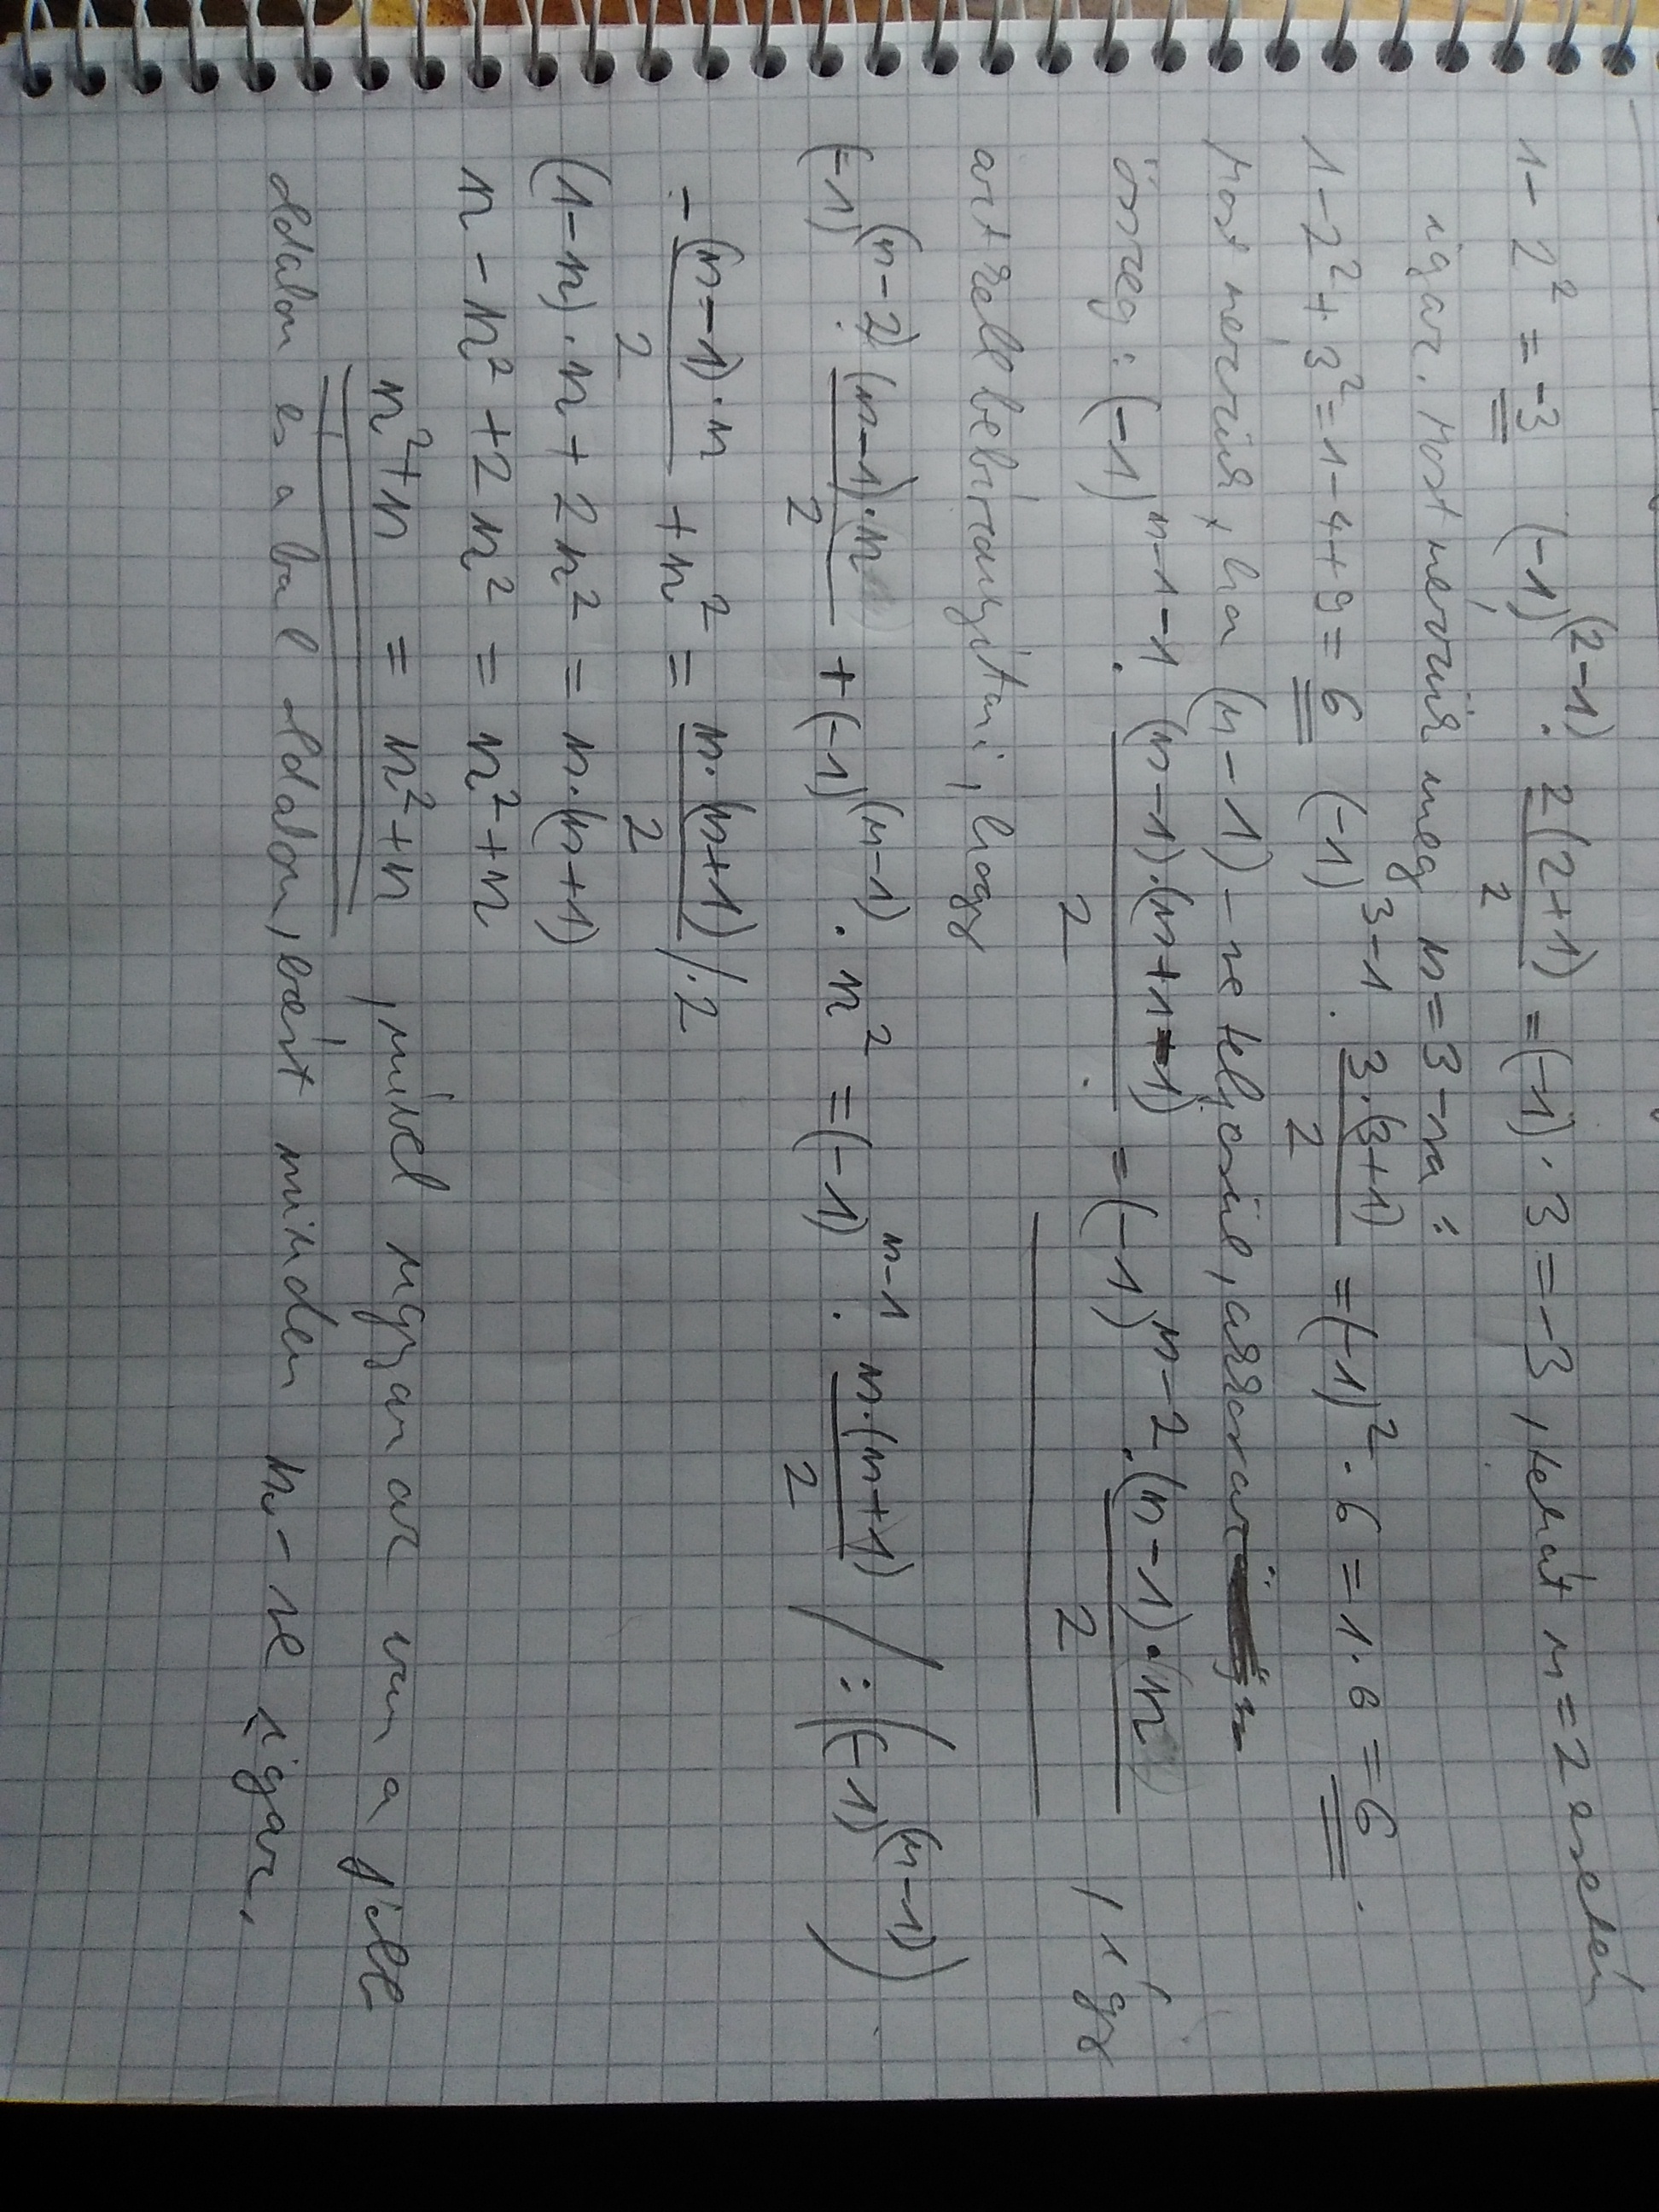 1 - 2² = -3 (-1)^(2-1) · 2(2+1)/2 = (-1) · 3 = -3, tehát n = 2 esetén
igaz. Most nézzük meg n = 3-ra:
1 - 2² + 3² = 1 - 4 + 9 = 6 (-1)^3-1 · 3·(3+1)/2 = (-1)² · 6 = 1 · 6 = 6.
Most nézzük, ha (n-1)-re teljesül, azaz az
összeg: (-1)^n-1-1 · (n-1)·(n+1-1)/2 = (-1)^n-2 · (n-1)·n/2, így
azt kell bebizonyítani, hogy
(-1)^(n-2) · (n-1)·n/2 + (-1)^(n-1) · n² = (-1)^n-1 · n·(n+1)/2 / :((-1)^(n-1))
-(n-1)·n/2 + n² = n·(n+1)/2 /·2
(1-n)·n + 2n² = n·(n+1)
n - n² + 2n² = n² + n
n² + n = n² + n, mivel ugyanaz van a jobb
oldalon és a bal oldalon, ezért minden n-re igaz.